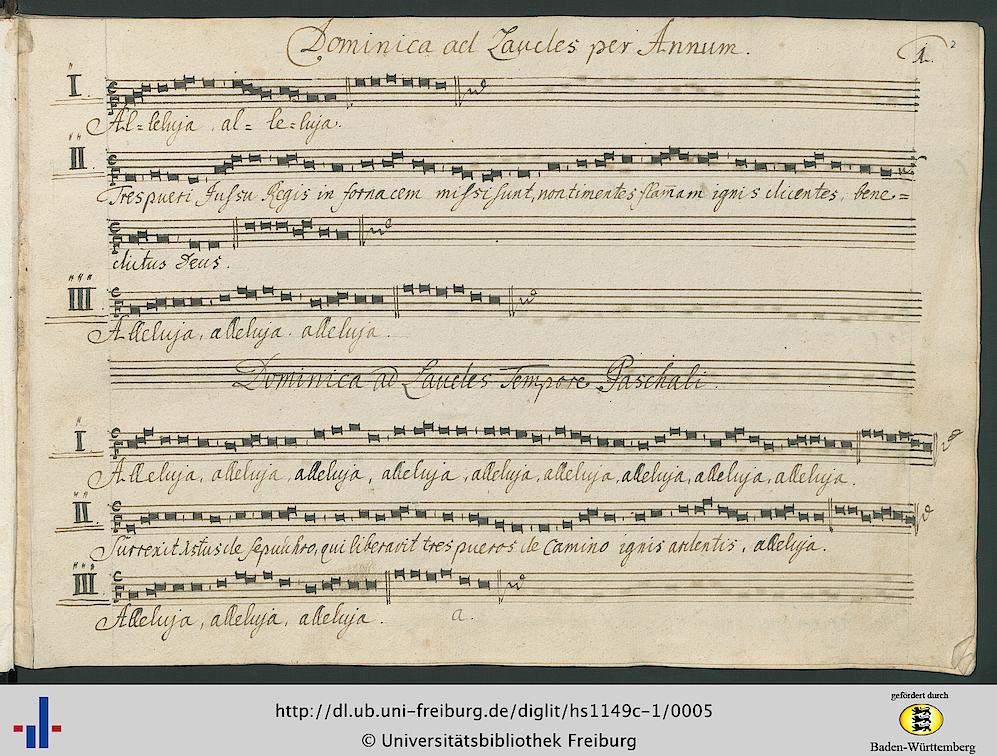 Dominica ad Laudes per Annum.
1.
2
I
Al=leluja al= le=luja.
II
Tres pueri Jussu Regis in fornacem missi sunt, non timentes flam̄am ignis dicentes, bene=
dictus Deus.
III
Alleluja, alleluja. alleluja.
Dominica ad Laudes Tempore Paschali.
I
Alleluja, alleluja, alleluja, alleluja, alleluja, alleluja, alleluja, alleluja, alleluja.
II
Surrexit Xstus de sepulchro, qui liberavit tres pueros de Camino ignis ardentis, alleluja.
III
Alleluja, alleluja, alleluja. a.
http://dl.ub.uni-freiburg.de/diglit/hs1149c-1/0005
© Universitätsbibliothek Freiburg
gefördert durch
Baden-Württemberg